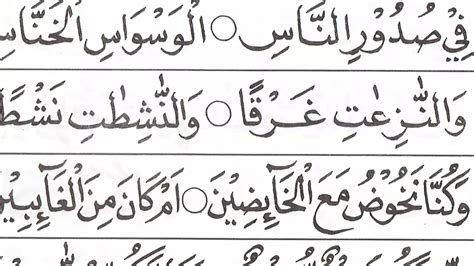 فِيْ صُدُوْرِ النَّاسِ ○ الْوَسْوَاسِ الْخَنَّاسِ
وَالنّٰزِعٰتِ غَرْقًا ○ وَالنّٰشِطٰتِ نَشْطًا
وَكُنَّا نَخُوْضُ مَعَ الْخَآئِضِيْنَ ○ اَمْ كَانَ مِنَ الْغَآئِبِيْنَ